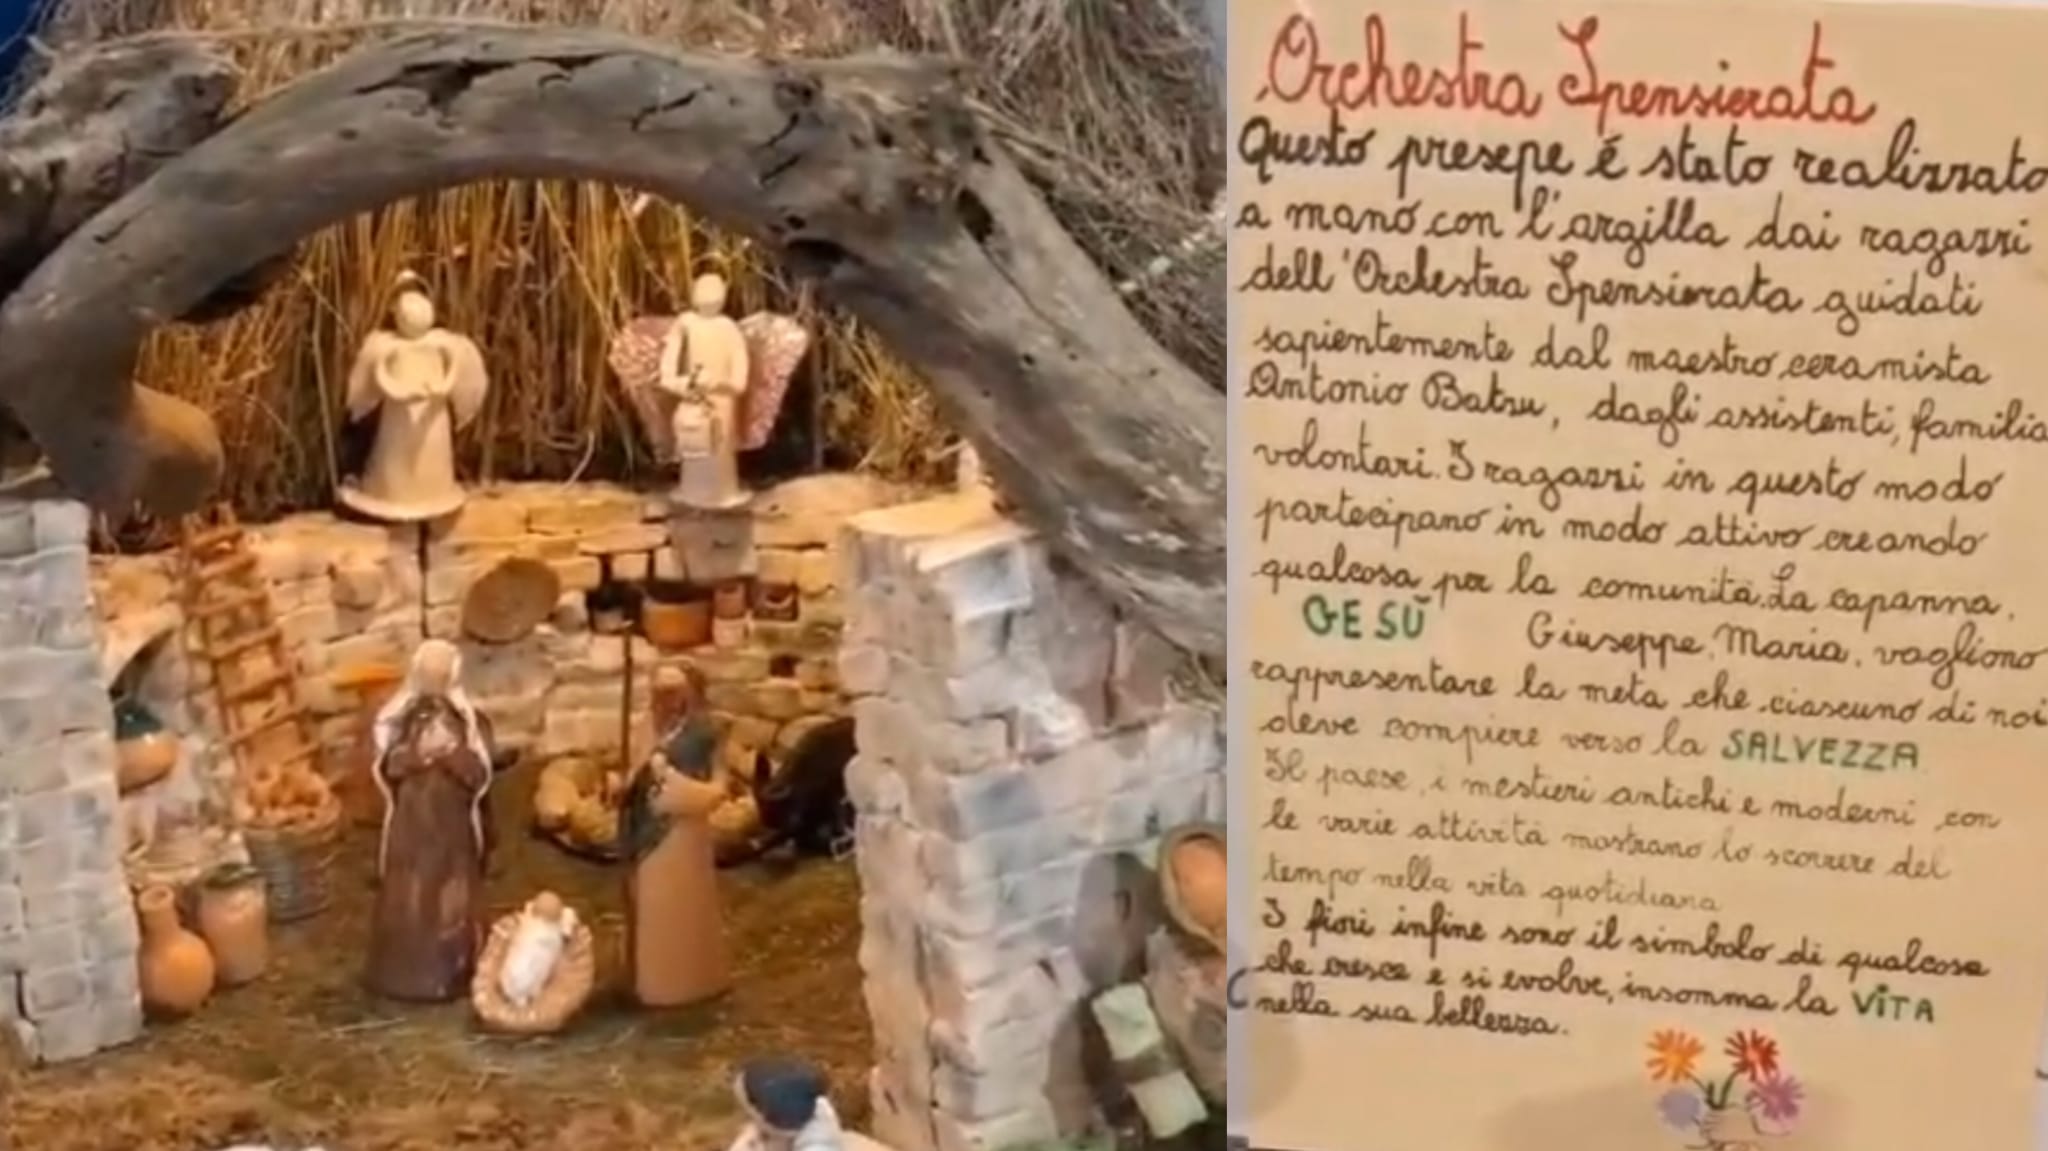 Orchestra Spensierata
Questo presepe é stato realizzato
a mano con l'argilla dai ragazzi
dell'Orchestra Spensierata guidati
sapientemente dal maestro ceramista
Antonio Batzu, dagli assistenti, familia
volontari. I ragazzi in questo modo
partecipano in modo attivo creando
qualcosa per la comunità. La capanna,
GESÙ Giuseppe, Maria, vogliono
rappresentare la meta che ciascuno di noi
deve compiere verso la SALVEZZA
Il paese, i mestieri antichi e moderni, con
le varie attività mostrano lo scorrere del
tempo nella vita quotidiana
I fiori infine sono il simbolo di qualcosa
che cresce e si evolve, insomma la VITA
nella sua bellezza.